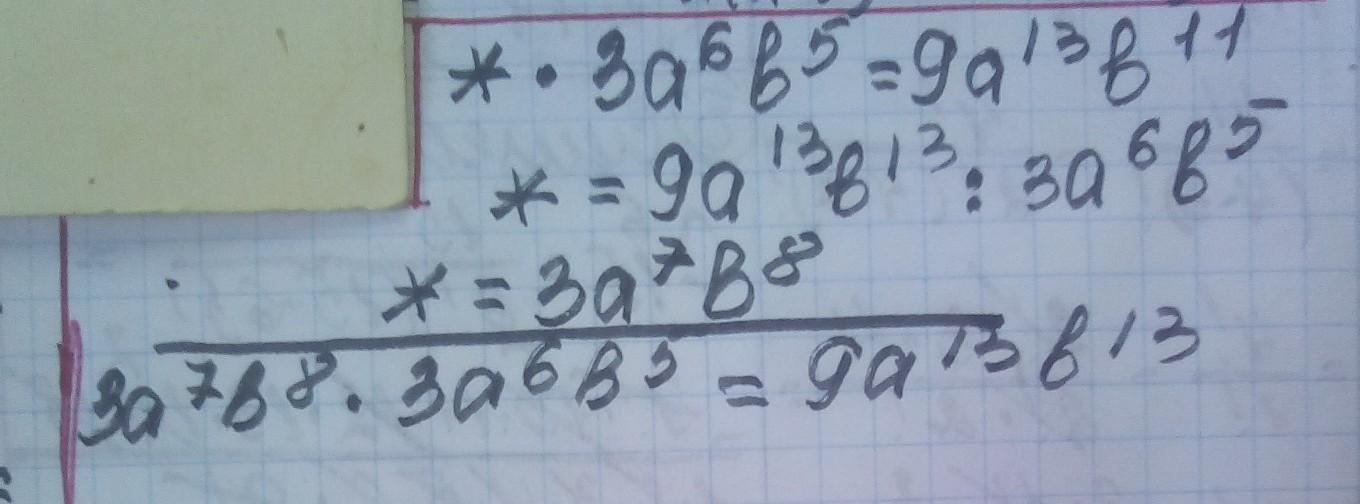 * · 3a⁶b⁵ = 9a¹³b¹¹
* = 9a¹³b¹³ : 3a⁶b⁵
* = 3a⁷b⁸
3a⁷b⁸ · 3a⁶b⁵ = 9a¹³b¹³